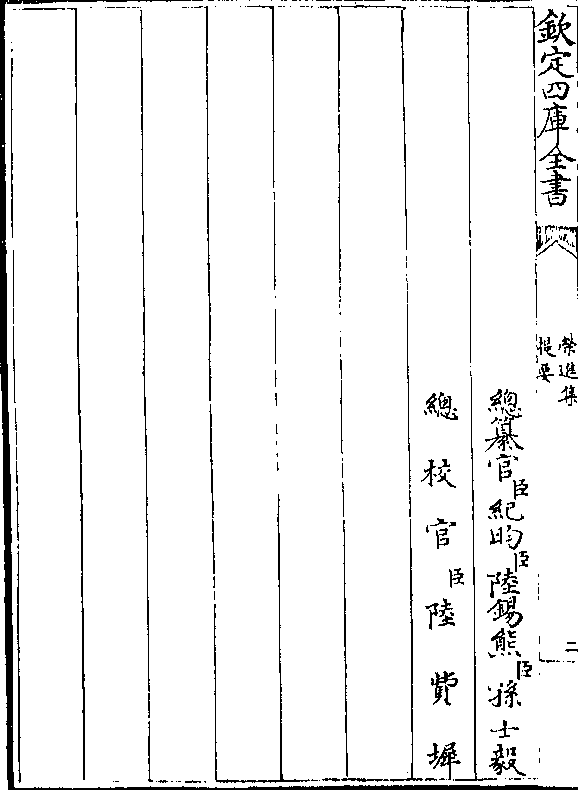 欽定四庫全書
榮進集
提要
二
總纂官臣紀昀臣陸錫熊臣孫士毅
總校官臣陸費墀